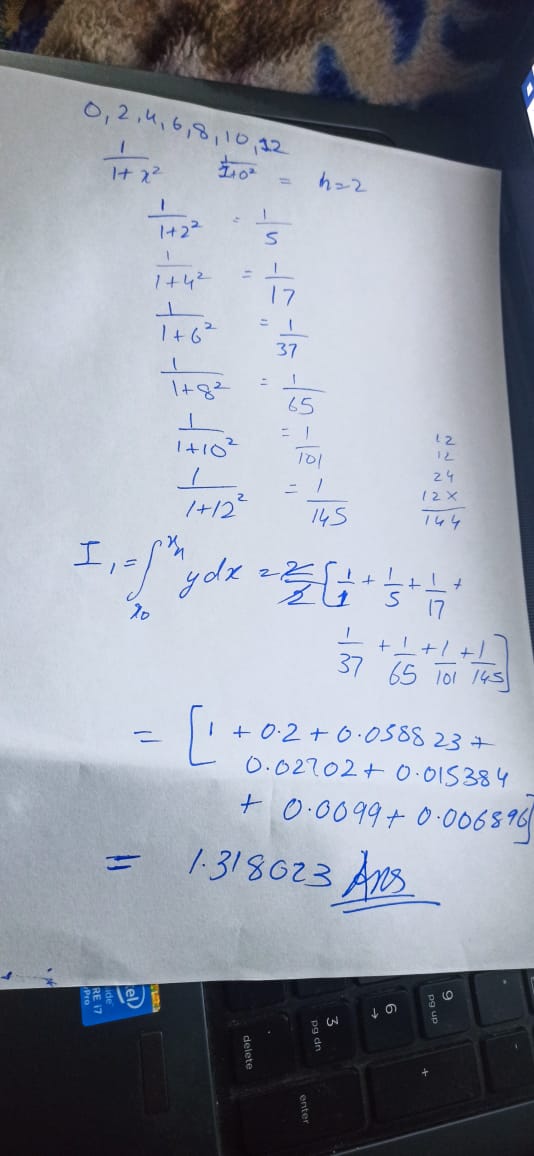 0, 2, 4, 6, 8, 10, 12
1/(1+x²) 1/(1+0²) = h=2
1/(1+2²) = 1/5
1/(1+4²) = 1/17
1/(1+6²) = 1/37
1/(1+8²) = 1/65
1/(1+10²) = 1/101
1/(1+12²) = 1/145
12
12
24
12×
144
I₁ = ∫ₓ₀^xₙ ydx = 2/2 [1/1 + 1/5 + 1/17 +
1/37 + 1/65 + 1/101 + 1/145]
= [1 + 0.2 + 0.058823 +
0.02702 + 0.015384
+ 0.0099 + 0.006896]
= 1.318023 Ans
RE i7
Pro
9
pg up
6
→
3
pg dn
+
delete
enter